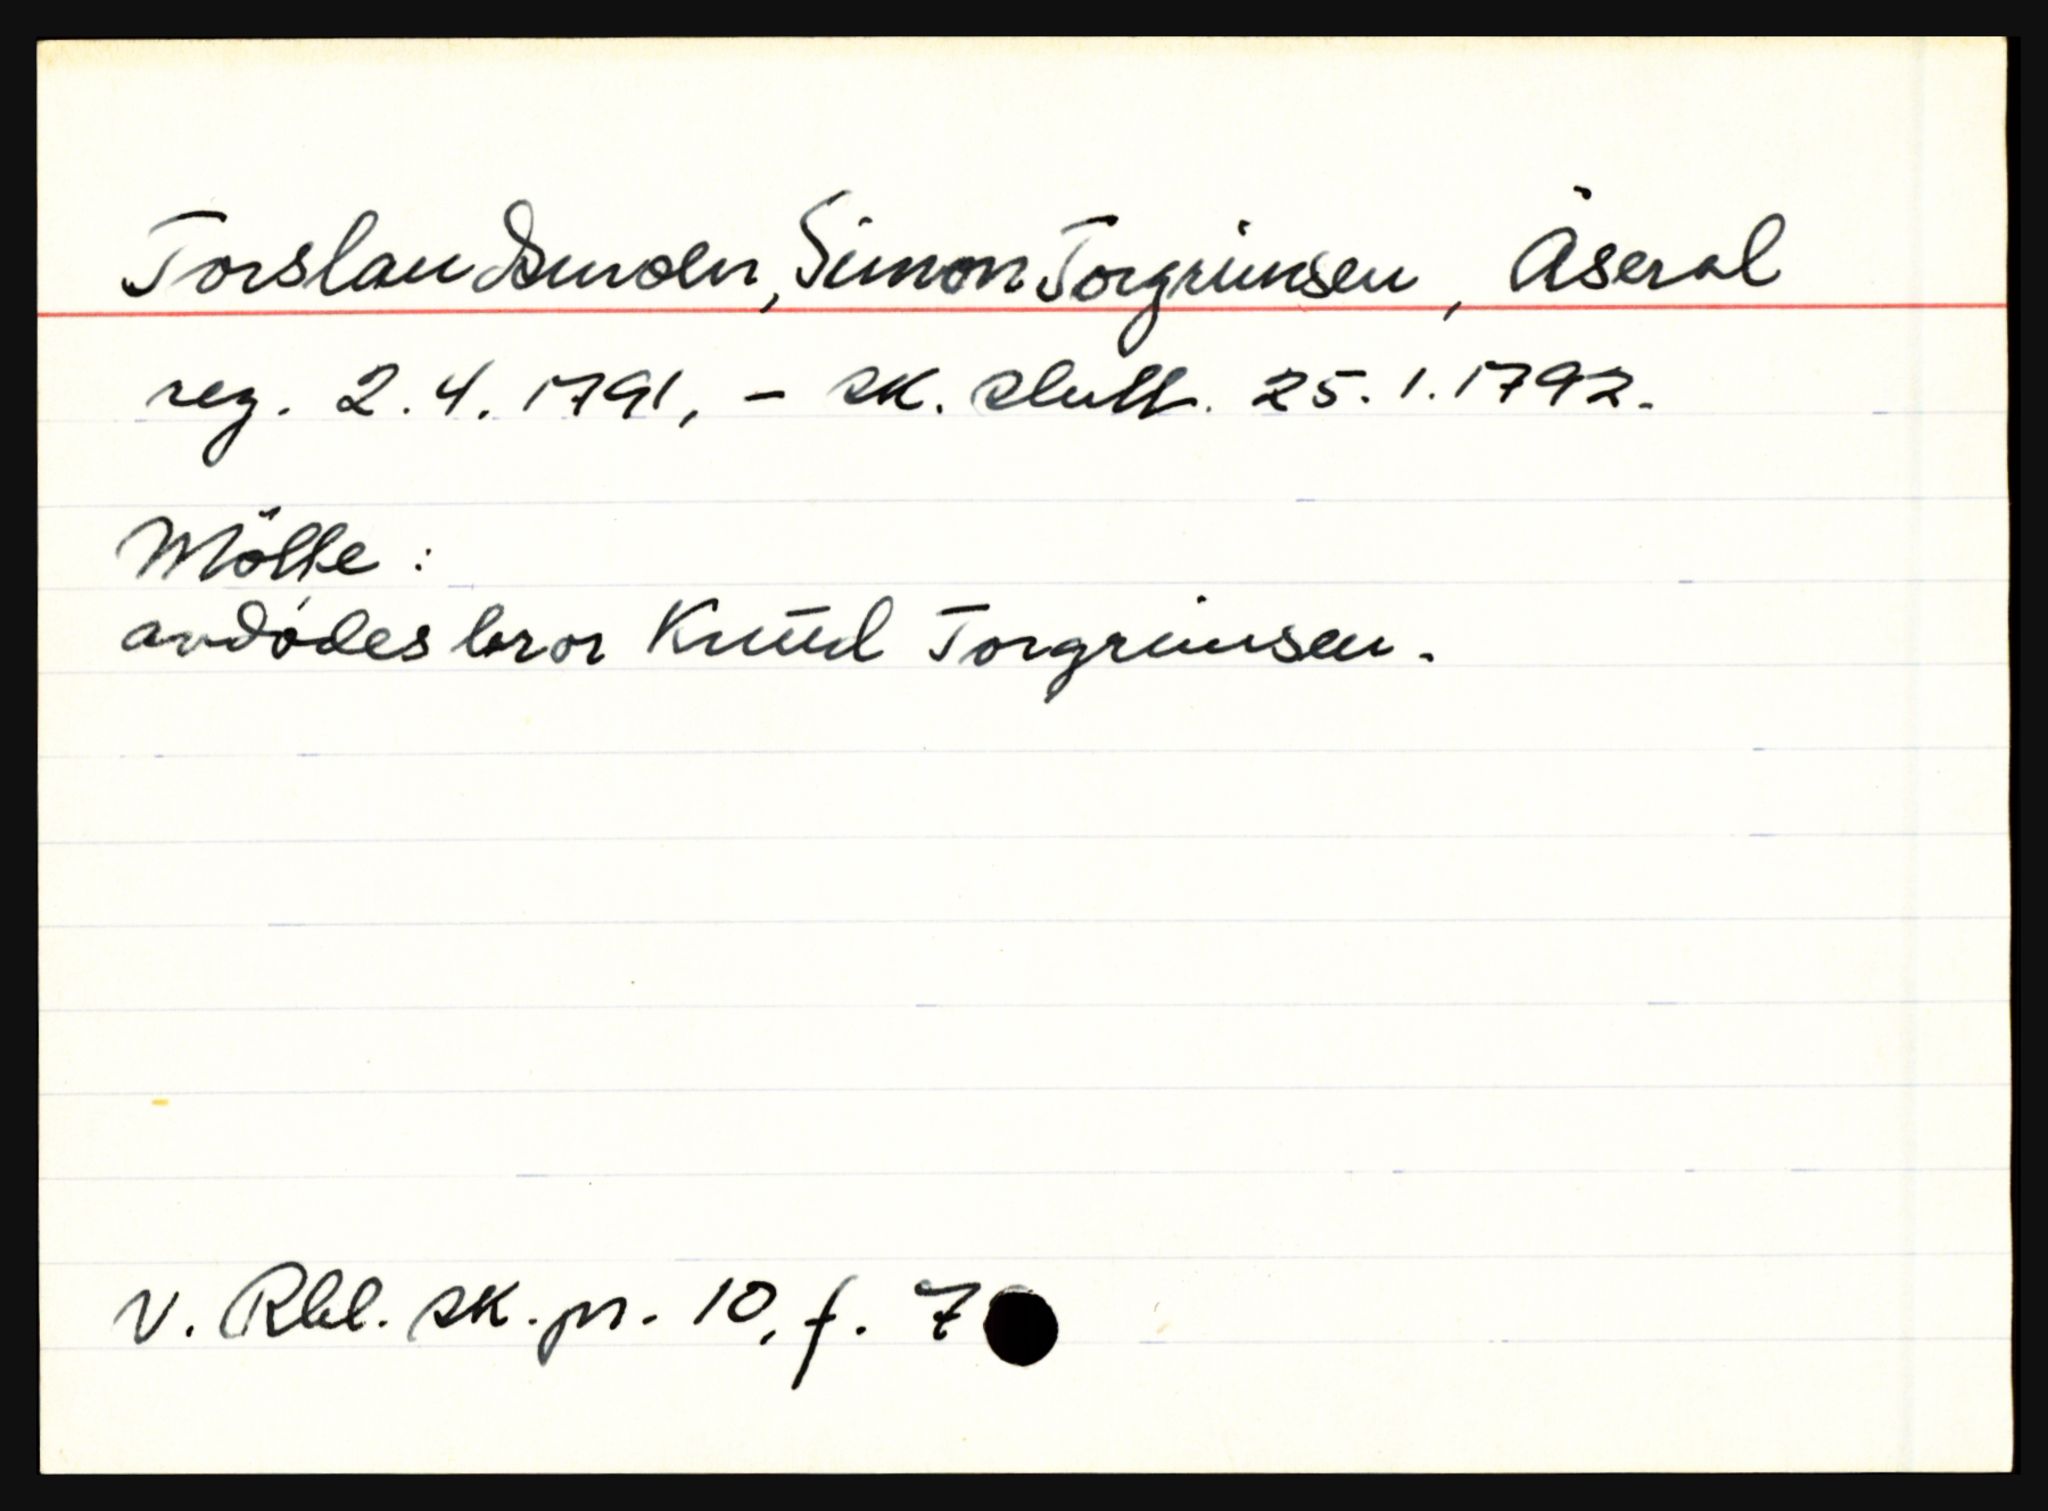 Torsland Simon Torgrimsen, Åseral
reg. 2.4.1791, - sk. slutt. 25.1.1792.
Mötte:
avdødes bror Knūd Torgrimsen.
V. Rbl. sk. pr. 10, f. 7